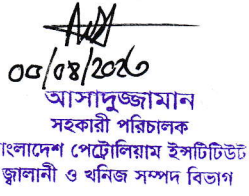 ০৩/০৪/২০২৩
আসাদুজ্জামান
সহকারী পরিচালক
বাংলাদেশ পেট্রোলিয়াম ইন্সটিটিউট
জ্বালানী ও খনিজ সম্পদ বিভাগ